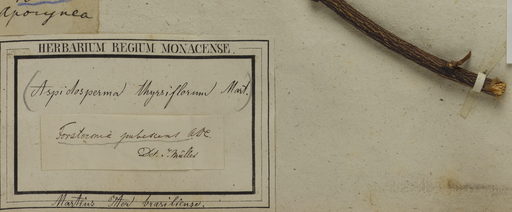 Apocynea
HERBARIUM REGIUM MONACENSE.
(Aspidosperma thyrsiflorum Mart.)
Forsteronia pubescens ADC.
Det. J. Müller
Martius Iter brasiliense.